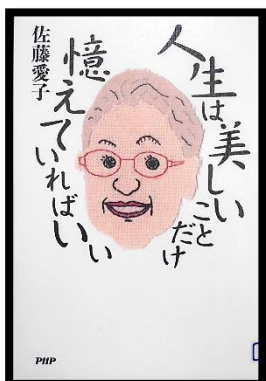 人生は美しいことだけ
憶えていればいい
佐藤愛子
PHP